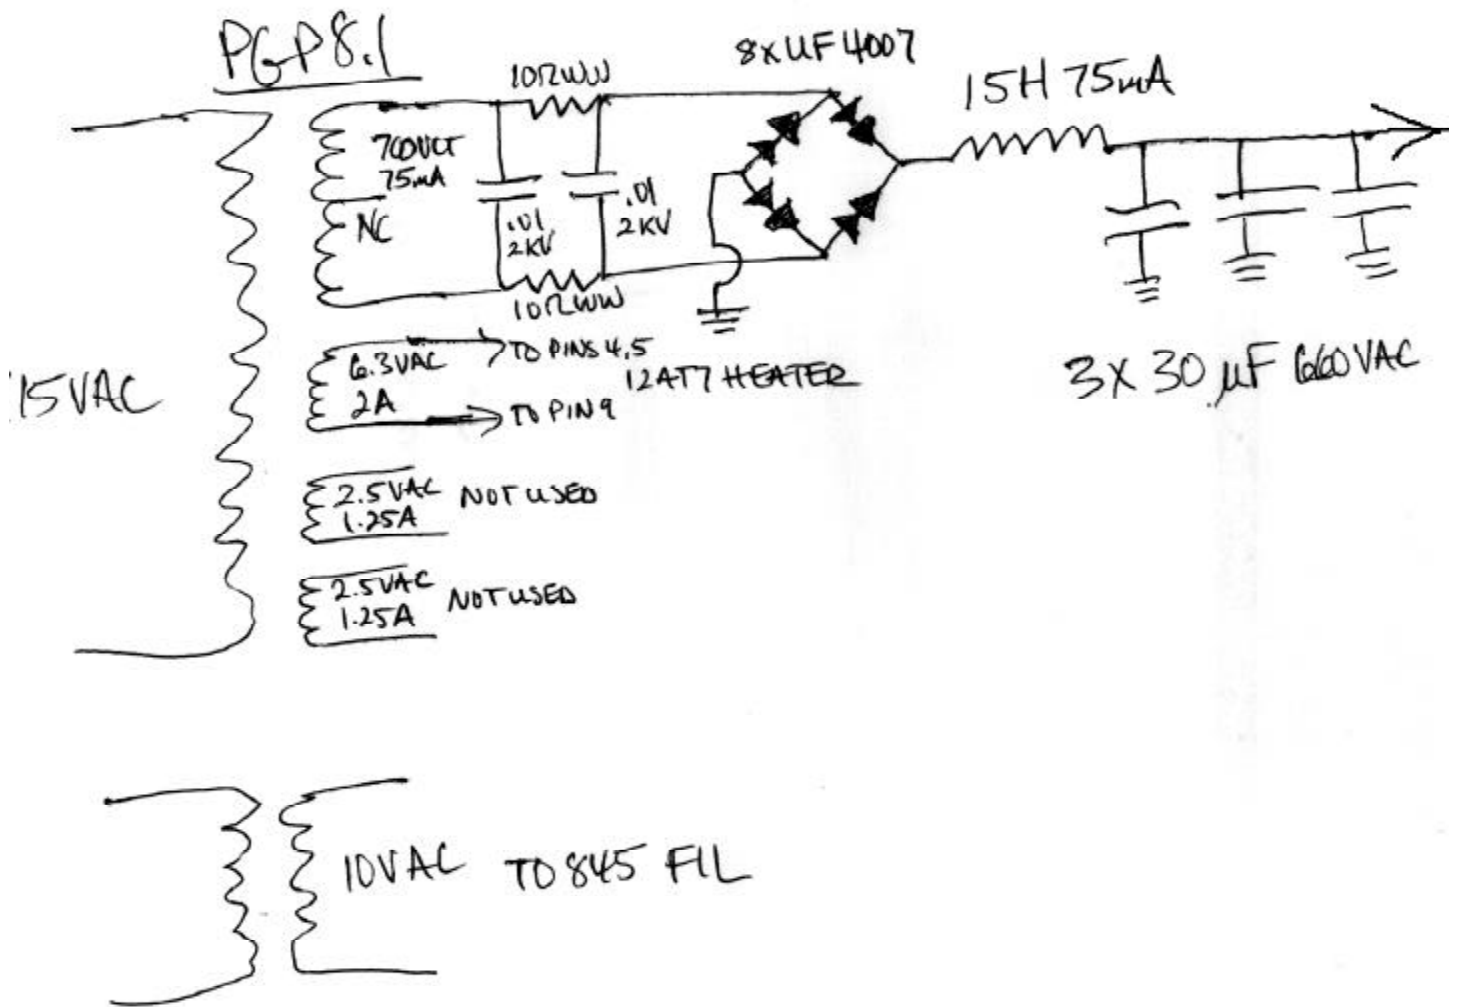 PGP8.1
8xUF4007
10ΩWW
15H 75mA
760VCT
75mA
NC
.01
2KV
.01
2KV
10ΩWW
6.3VAC
2A
TO PINS 4,5
12AT7 HEATER
TO PIN 9
15VAC
3X 30 µF 660VAC
2.5VAC
1.25A
NOT USED
2.5VAC
1.25A
NOT USED
10VAC TO 845 FIL